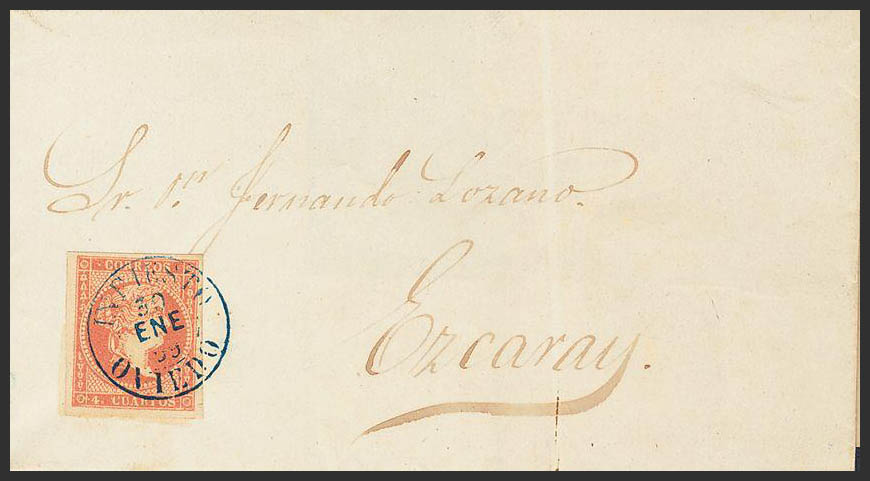 Sr. Dn. Fernando Lozano.
Ezcaray.
CORREOS
INFIESTO
30
ENE
59
OVIEDO
4 CUARTOS